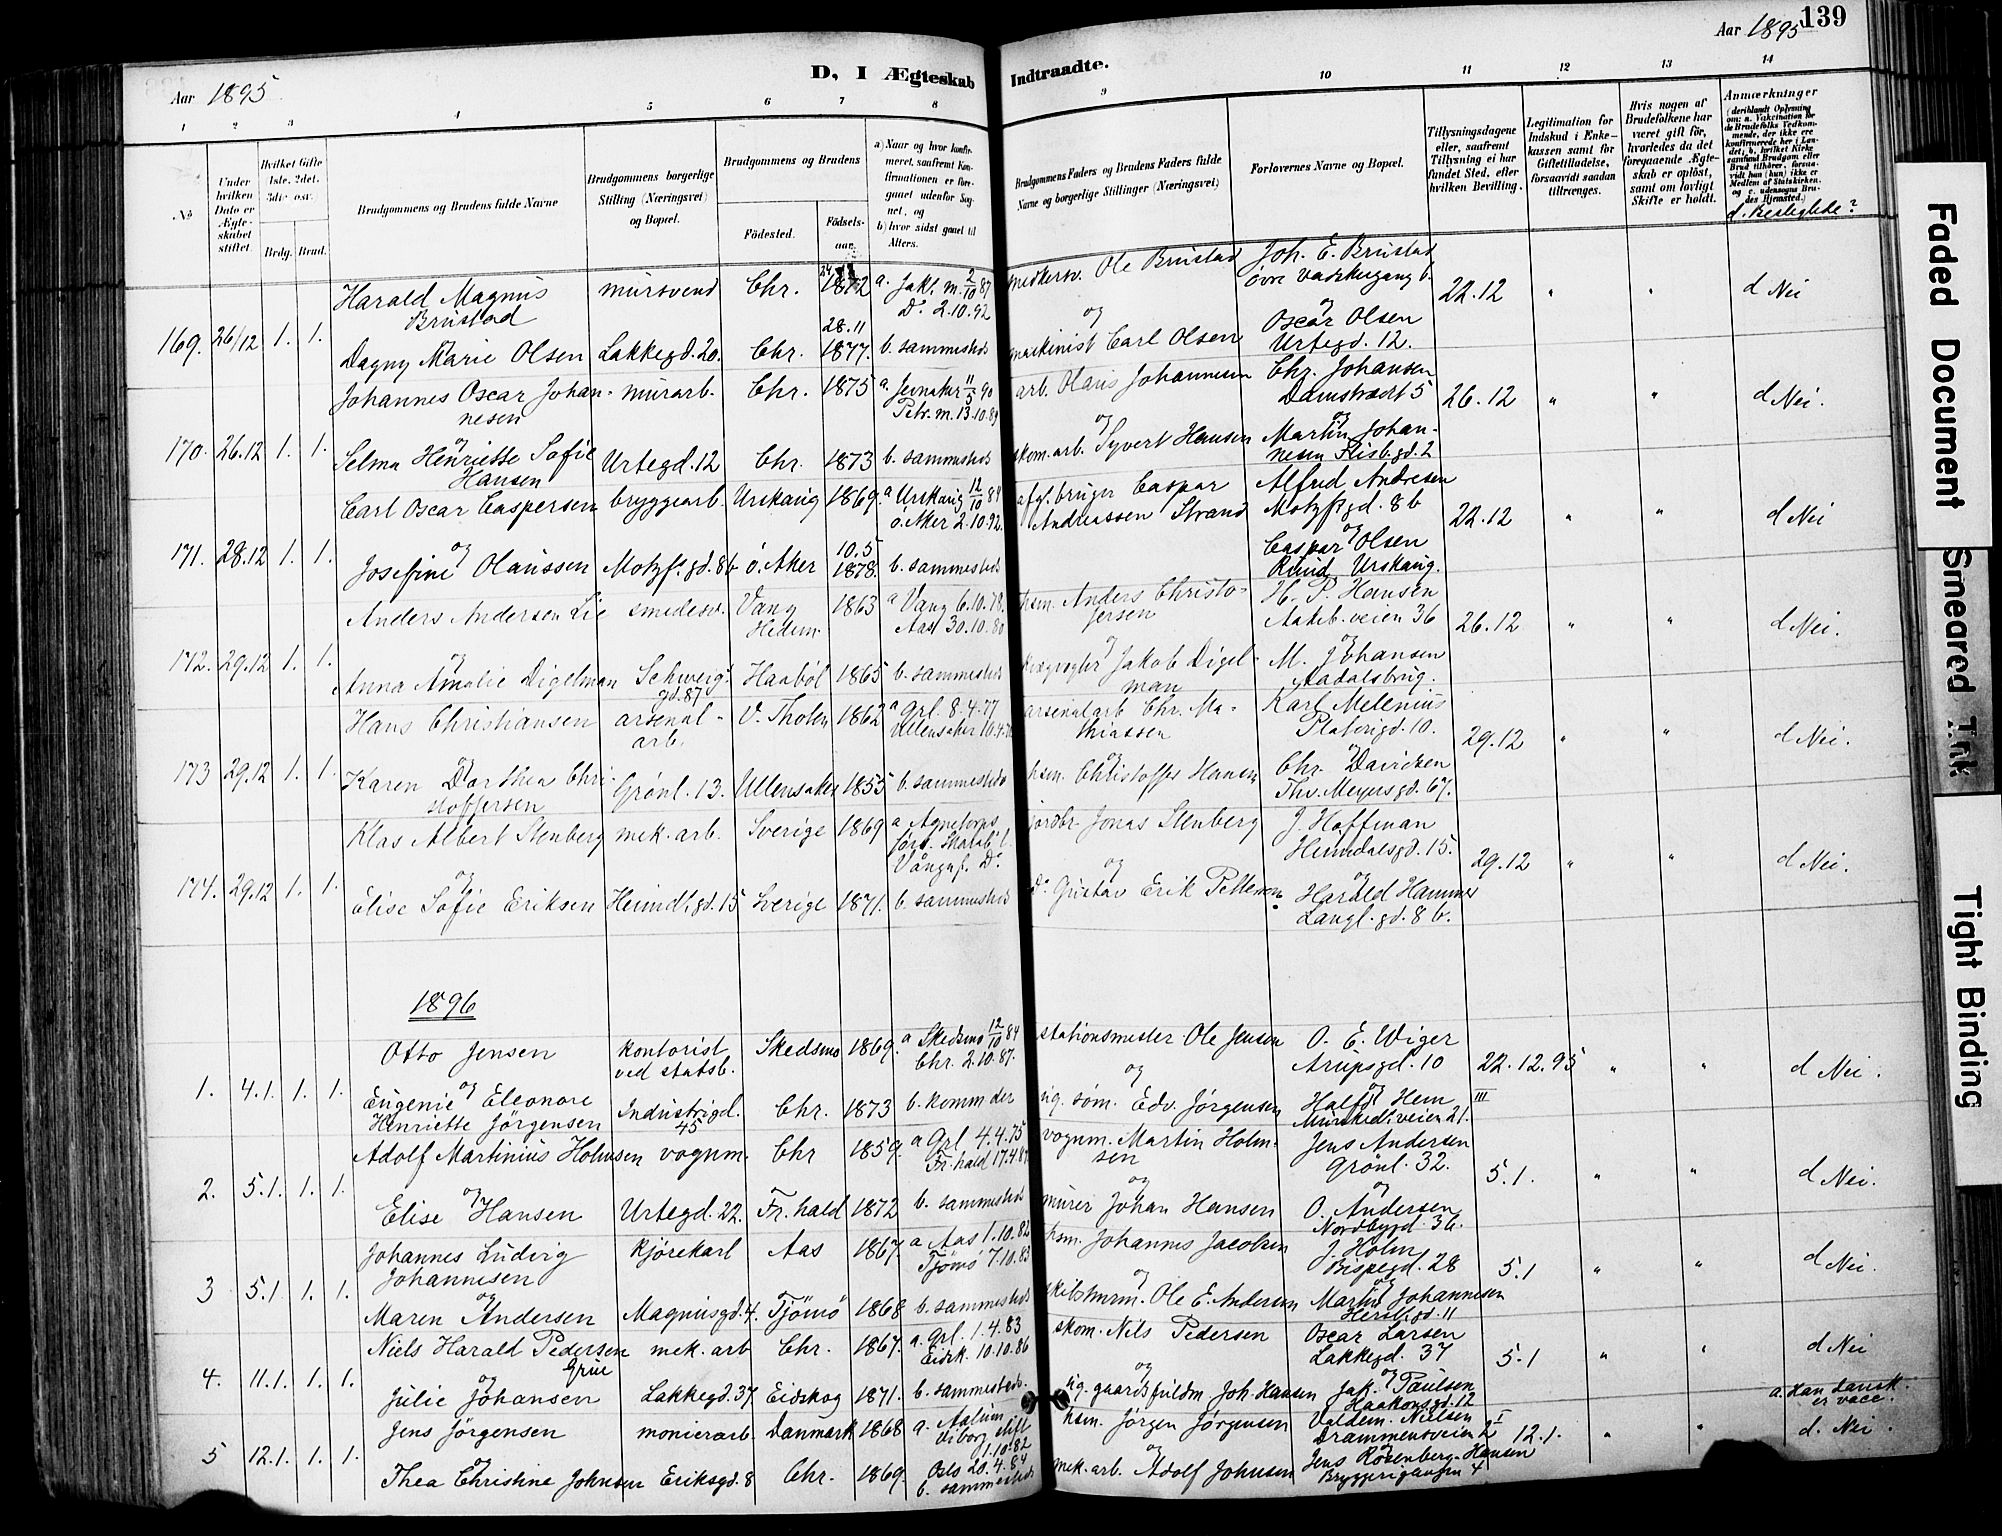 Aar 1895
D, I Ægteskab Indtraadte.
Aar 1895 139
1 2 3 4 5 6 7 8 9 10 11 12 13 14
No
Under hvilken Dato er Ægteskabet stiftet.
Hvilket Gifte 1ste, 2det, 3die osv.
Brdg. Brud.
Brudgommens og Brudens fulde Navne
Brudgommens borgerlige Stilling (Næringsvei) og Bopæl.
Brudgommens og Brudens
Födested. Födsels-aar.
a) Naar og hvor konfirmeret, saafremt Konfirmationen er foregaaet udenfor Sognet, og
b) hvor sidst gaaet til Alters.
Brudgommens Faders og Brudens Faders fulde Navne og borgerlige Stillinger (Næringsvei)
Forlovernes Navne og Bopæl.
Tillysningsdagene eller, saafremt Tillysning ei har fundet Sted, efter hvilken Bevilling.
Legitimation for Indskud i Enkekassen samt for Giftetilladelse, forsaavidt saadan tiltrænges.
Hvis nogen af Brudefolkene har været gift för, hvorledes da det foregaaende Ægteskab er oplöst, samt om lovligt Skifte er holdt.
Anmærkninger
(deriblandt Oplysning om: a. Vakcination for de Brudefolks Vedkommende, der ikke ere konfirmerede her i Landet; b. hvilket Kirkesamfund Brudgom eller Brud tilhörer, forsaavidt han (hun) ikke er Medlem af Statskirken, og c. udensogns Brudes Hjemsted.)
d. Beslegtede?
169. 26/12 1. 1. Harald Magnus Brustad mursvend Chr. 1872 a. Jak. m. 2/10 87 Do 2.10.92 Ole Brustad Joh. E. Brustad 22.12 " " d Nei
og
Dagny Marie Olsen Lakkegd. 20. Chr. 28.11 1877. b. sammesteds maskinist Carl Olsen Oscar Olsen Urtegd. 12.
170. 26.12 1. 1. Johannes Oscar Johannesen murarb. Chr. 1875 11/5 90 Petr. m. 13.10.89 arb. Olaus Johannesen Chr. Johansen Damstrædt 5 26.12 " " d Nei.
og
Selma Henriette Sofie Hansen Urtegd. 12 Chr. 1873 b. sammesteds skom. arb. Syvert Hansen Martin Johannesen gd. 2
171. 28.12 1. 1. Carl Oscar Caspersen bryggearb. Urskaug 1869. a Urskaug 12/10 84 ö. Aker 2.10.92. Caspar Andreassen Strand Alfred Andresen Motzf. gd. 8 b 22.12 " " d Nei
og
Josefine Olaussen Motzf. gd. 8 b ö. Aker 10.5 1878. b. sammesteds Caspar Olsen Urskaug.
172. 29.12 1. 1. Anders Andersen Lie smedesv. Vang Hedem. 1863 a Vang 6.10.78. Aas 30.10.80 hsm. Anders Christofersen H. P. Hansen Aakeb.veien 36 26.12 " " d Nei.
og
Anna Amalie Digelman Schweig. gd. 87 Haaböl 1865 b. sammesteds Jakob Digelman M. Johansen Aadalsbrug.
173 29.12 1. 1. Hans Christiansen arsenalarb. V. Thoten 1862 a Grl. 8.4.77 Ullensaker arsenalarb Chr. Mathiassen Karl Melenius Platougd. 10. 29.12 " " d Nei.
og
Karen Dorthea Christoffersen Grönl. 13. Ullensaker 1855 b. sammesteds hsm. Christoffer Hansen Chr. Davidsen Thv. Meyersgd. 67.
174. 29.12 1. 1. Klas Albert Stenberg mek. arb. Sverige 1869 a Agnetorps Vånga f. Do jordbr. Jonas Stenberg J. Hoffman Heimdalsgd. 15. 29.12 " " d Nei.
og
Elise Sofie Eriksen Heimdl. gd. 15 Sverige 1871. b. sammesteds Do Gustav Erik Petterson Harald Hammer Langl. gd. 8 b.
1896
1. 4.1. 1. 1. Otto Jensen kontorist ved statsb. Skedsmo 1869. a Skedsmo 12/10 84 Chr. 2.10.87. stationsmester Ole Jensen O. E. Wiger Arupsgd. 10 22.12.95 " " d Nei.
og
Eugenie Eleonore Henriette Jörgensen Industrigd. 45 Chr. 1873 b. komm der Edv. Jörgensen Halfd. Hem veien 21. III
2. 5.1. 1. 1. Adolf Martinius Holmsen vognm. Chr 1859. a Grl 4.4.75 Fr. hald 17.4.87 vognm. Martin Holmsen Jens Andersen Grönl. 32. 5.1. " " d Nei.
og
Elise Hansen Urtegd. 22. Fr. hald 1872 b. sammesteds murer Johan Hansen O. Andersen Nordbygd. 36.
3 5.1 1. 1. Johannes Ludvig Johannesen kjörekarl Aas 1867. a Aas 1.10.82 Tjömö 7.10.83 hsm. Johannes Jacobsen J. Holm Bispegd. 28 5.1 " " d Nei.
og
Maren Andersen Magnusgd. 4. Tjömö 1868 b. sammesteds Ole E. Andersen Martin Johannesen Herslbgd. 11
4. 11.1. 1. 1. Niels Harald Pedersen Grue mek. arb Chr. 1867. a. Grl. 1.4.83 Eidsk. 10.10.86 skom. Nils Pedersen Oscar Larsen Lakkegd. 37 5.1 " " d Nei
og
Julie Johansen Lakkegd. 37 Eidskog 1871. b. sammesteds. Joh. Hansen Jak. Paulsen Haakonsgd. 12
5 12.1. 1. 1. Jens Jörgensen monierarb Danmark 1868 a. Aalum Viborg stift 1.10.82 hsm. Jörgen Jörgensen Valdem. Nielsen Drammensveien 2 I 12.1. " " a. han dansk. er vacc. d. Nei.
og
Thea Christine Johnsen Eriksgd. 8 Chr. 1869. Oslo 20.4.84 b. sammesteds mek. arb. Adolf Johnsen Jens Rosenberg-Hansen Bryggerigangen 4
Faded Document
Smeared Ink
Tight Binding